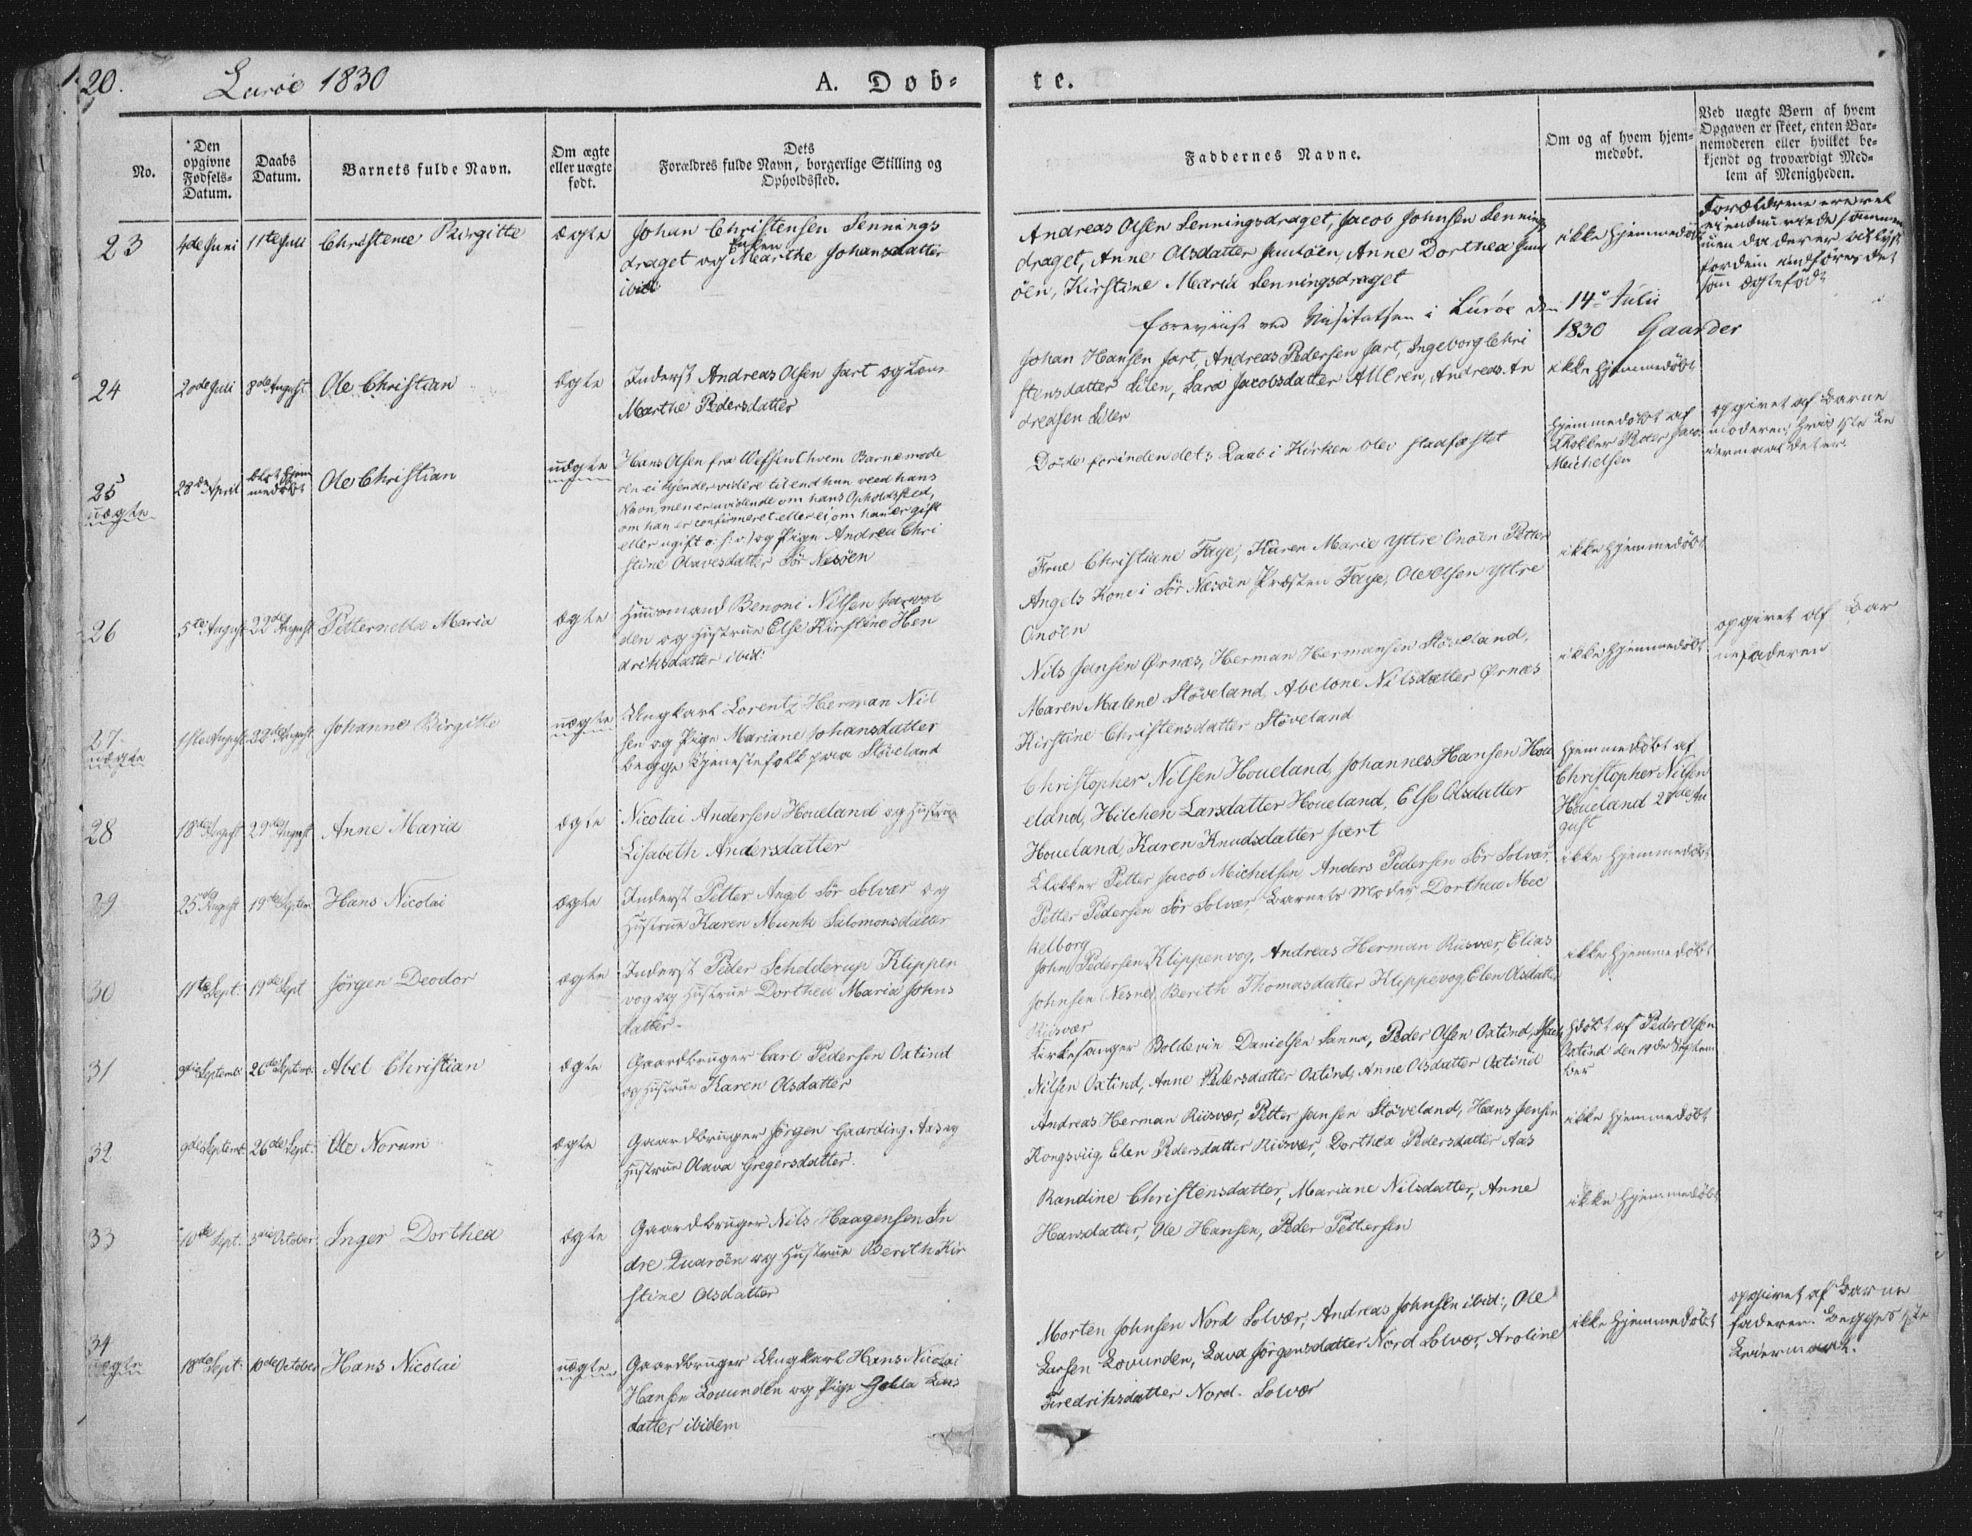 20.
Lurøe 1830
A. Døb-
te.
No.
Den
opgivne
Fødsels-
Datum.
Daabs
Datum.
Barnets fulde Navn.
Om ægte
eller uægte
født.
Dets
Forældres fulde Navn, borgerlige Stilling og
Opholdssted.
Faddernes Navne.
Om og af hvem hjem-
medøbt.
Ved uægte Børn af hvem
Opgaven er skeet, enten Bar-
nemoderen eller hvilket be-
kjendt og troværdigt Med-
lem af Menigheden.
23
4de Juni
11te Juli
Christence Birgitte
ægte
Johan Christensen Lennings
draget og Marthe Johansdatter
ibid
Andreas Olsen Lenningsdraget, Jacob Johnsen Lennings
draget, Anne Olsdatter, Anne Dorthea
øen, Kirstine Maria Lenningsdraget
ikke hjemmedøbt
Forældrene ere vel
som ægtefødt
foreviist ved Visitatsen i Lurøe den 14de Julii
1830 Gaarder
24
20de Juli
8de August
Ole Christian
ægte
Inderst Andreas Olsen Hart og Kone
Marthe Pedersdatter
Johan Hansen Hart, Andreas Pedersen Hart, Ingeborg Chri
stensdatter Lilen, Sara Jacobsdatter Alleren, Andreas An
dreasen Lilen
ikke hjemmedøbt
25
uægte
28de April
blot hjem
medøbt
Ole Christian
uægte
Hans Olsen fra Vefsen (hvem Barnemode
ren ei kjender videre til end hun veed hans
Navn, men er uvidende om hans Opholdsted,
om han er confirmeret eller ei om han er gift
eller ugift o: s: v:) og Pige Andrea Chri
stine Olavesdatter Sør Nesøen
Døde forinden dets Daab i Kirken blev stadfæstet
hjemmedøbt af
Klokker Petter Jacob
Michelsen
opgivet af Barne
moderen, hvis 1ste Le
iermaal det er.
26
5te August
22de August
Petternella Maria
ægte
Huusmand Benoni Nilsen
den og Hustrue Else Kirstine Hen
driksdatter ibid:
Frue Christiane Faye, Karen Marie Yttre Onøen Petter
Angels Kone i Sør Nesøen Præsten Faye, Ole Olsen Yttre
Onøen
ikke hjemmedøbt
27.
uægte
11te August
22de August
Johanna Birgitte
uægte
Ungkarl Lorentz Herman Nil
sen og Pige Mariane Johansdatter
begge Tjenestefolk paa Støveland
Nils Jensen Ørnæs, Herman Hermansen Støveland,
Maren Malene Støveland, Abelone Nilsdatter Ørnæs
Kirstine Christensdatter Støveland
ikke hjemmedøbt
opgivet af Bar
nefaderen
28
18de August
29de August
Anne Maria
ægte
Nicolai Andersen Houeland og Hustrue
Lisabeth Andersdatter
Christopher Nilsen Houeland, Johannes Hansen Hou
eland, Hilchen Larsdatter Houeland, Else Olsdatter
Houeland, Karen Knudsdatter Hært
hjemmedøbt af
Christopher Nilsen
Houeland 27de Au
gust
29
25de August
19de Septem
Hans Nicolai
ægte
Inderst Petter Angel Sør Solvær og
Hustrue Karen Munk Salomonsdatter
Klokker Petter Jacob Michelsen, Anders Pedersen Sør Solvær,
Petter Pedersen Sør Solvær, Barnets Moder, Dorthea Mec
kelborg
ikke hjemmedøbt
30
11te Sept.
19de Sept
Jørgen Deodor
ægte
Inderst Peder Schelderup Klippen
vog og Hustrue Dorthea Maria Johns
datter.
John Pedersen Klippenvog, Andreas Herman Risvær, Elias
Johnsen Nesne, Berith Thomasdatter Klippevog, Elen Olsdatter
Risvær
ikke hjemmedøbt
31
9de Septemb
26de Septemb.
Abel Christian
ægte
Gaardbruger Carl Pedersen Oxtind
og Hustrue Karen Olsdatter
Kirkesanger Boldevin Danielsen Sanna, Peder Olsen Oxtind,
Nilsen Oxtind, Anne Pedersdatter Oxtind, Anne Olsdatter Oxtind
hdøbt af Peder Olsen
Oxtind den 19de Septem
ber
32
9de Septemb.
26de Sept.
Ole Norum
ægte
Gaardbruger Jørgen Gaarding Aas og
Hustrue Olava Gregersdatter.
Andreas Herman Risvær, Petter Jansen Støveland, Hans Jensen
Kongsviig, Elen Pedersdatter Risvær, Dorthea Pedersdatter Aas
ikke hjemmedøbt
33
10de Sept.
3die October
Inger Dorthea
ægte
Gaardbruger Nils Haagensen In
dre Quarøen og Hustrue Berith Kir
stine Olsdatter
Randine Christensdatter, Mariane Nilsdatter, Anne
Hansdatter, Ole Hansen, Peder Pettersen
ikke hjemmedøbt
34
uægte
18de Sept.
10de October
Hans Nicolai
uægte
Gaardbruger Ungkarl Hans Nicolai
Hansen Lovunden og Pige Golla Lars
datter ibidem
Morten Johnsen Nord Solvær, Andreas Johnsen ibid:, Ole
Larsen Lovunden, Lava Jørgensdatter Nord Solvær, Aroline
Fredriksdatter Nord. Solvær
ikke hjemmedøbt
opgivet af Barne
faderen. Begges 1ste
Leiermaal.